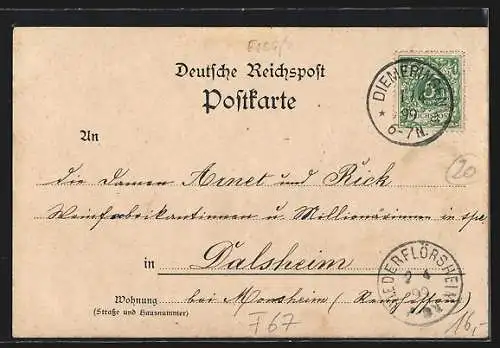 Deutsche Reichspost
Postkarte
DIEMERINGEN
99
6-7N.
An
die Damen Arnet und Rick
Weinfabrikantinnen u. Millionärinnen in spe
in Dalsheim
Wohnung bei Monsheim (Rheinhessen)
(Straße und Hausnummer)
NIEDERFLÖRSHEIM
2 4
99
20
F67
16,-